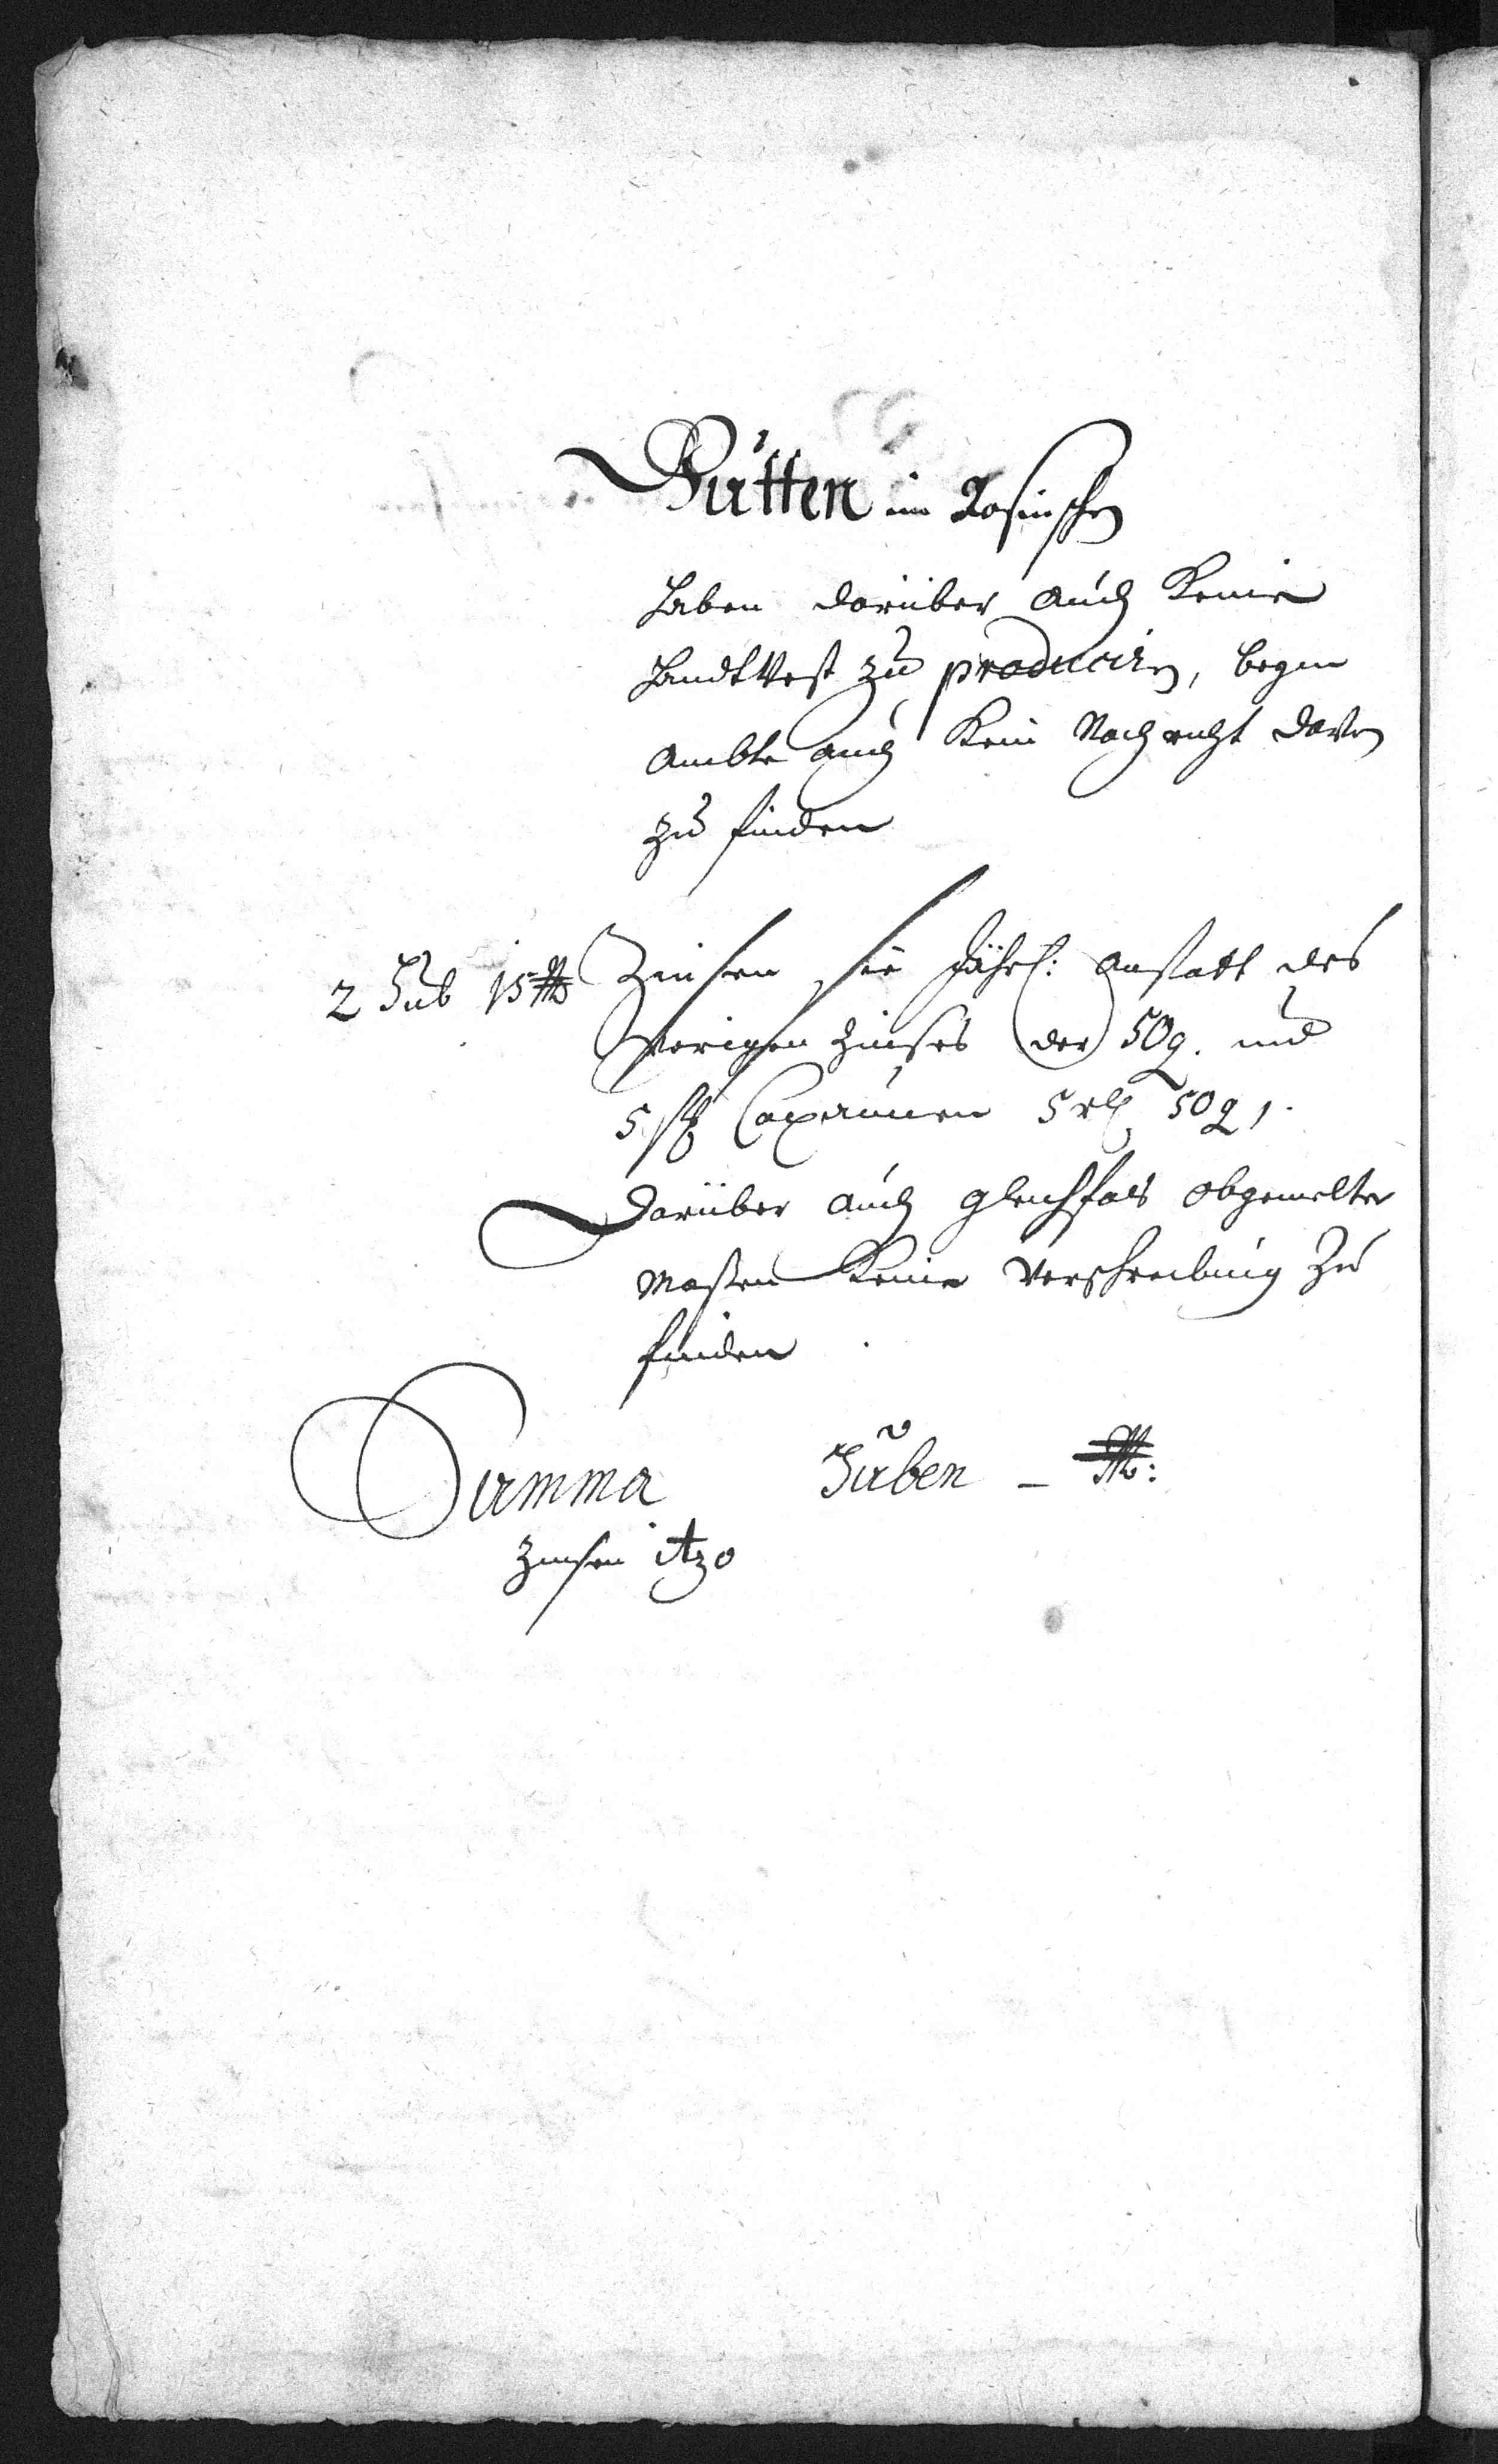 Gütten im Rosinschen
Haben darüber auch Keine
Handtvest zu produciren, beym
Ambte auch Kein Nachricht davon
zu finden
2 Hub 15 M Zinsen sie Jährl: anstatt des
Vorigen Zinses der 50 g. und
5 stk Capaunen 5 rth 50 g 1.
Darüber auch gleichfals obgemelter
maßen Keine Verschreibung Zu
finden
Summa Huben – M:
Zinsen itzo